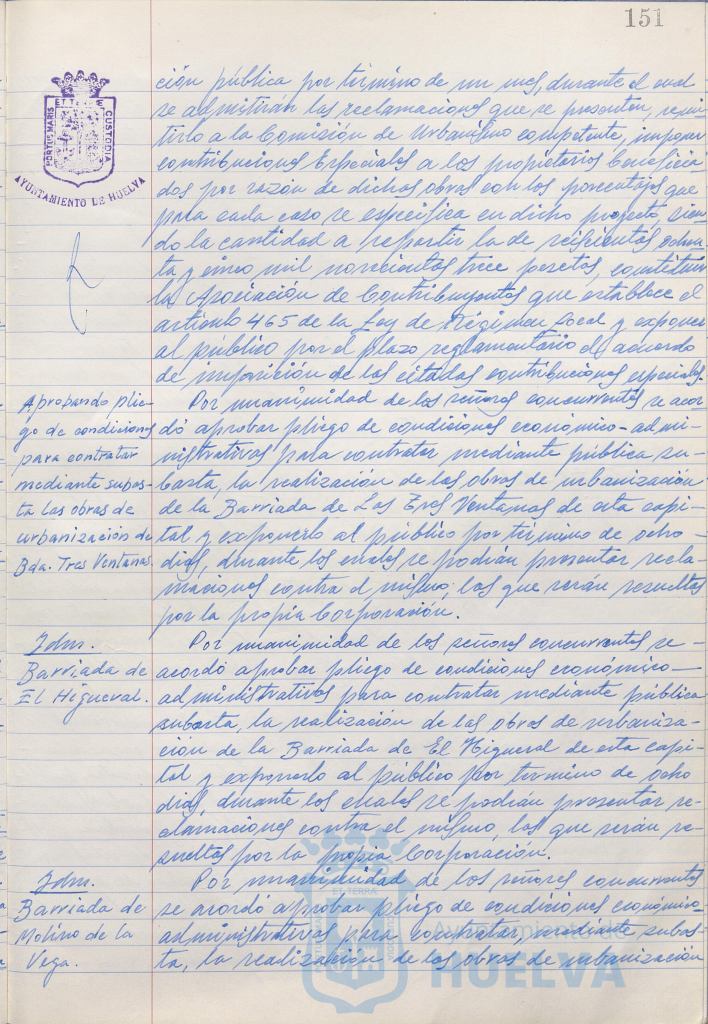 151
PORTUS MARIS ET TERRE CUSTODIA
AYUNTAMIENTO DE HUELVA
ción pública por término de un mes, durante el cual
se admitirán las reclamaciones que se presenten, remi-
tirlo a la Comisión de Urbanismo competente, imponer
contribuciones Especiales a los propietarios beneficia-
dos por razón de dichas obras con los porcentajes que
para cada caso se especifica en dicho proyecto, sien-
do la cantidad a repartir la de seiscientas ochen-
ta y cinco mil novecientas trece pesetas, constituir
la Asociación de Contribuyentes que establece el
artículo 465 de la Ley de Régimen Local y exponer
al público por el plazo reglamentario el acuerdo
de imposición de las citadas contribuciones especiales.
Aprobando plie-
go de condiciones
para contratar
mediante subas-
ta las obras de
urbanización de
Bda. Tres Ventanas.
Por unanimidad de los señores concurrentes se acor-
dó aprobar pliego de condiciones económico-admi-
nistrativas para contratar mediante pública su-
basta, la realización de las obras de urbanización
de la Barriada de Las Tres Ventanas de esta capi-
tal y exponerlo al público por término de ocho
días, durante los cuales se podrán presentar recla-
maciones contra el mismo, las que serán resueltas
por la propia Corporación.
Idm.
Barriada de
El Higueral.
Por unanimidad de los señores concurrentes se
acordó aprobar pliego de condiciones económico-
administrativas para contratar mediante pública
subasta, la realización de las obras de urbaniza-
ción de la Barriada de El Higueral de esta capi-
tal y exponerlo al público por término de ocho
días, durante los cuales se podrán presentar re-
clamaciones contra el mismo, las que serán re-
sueltas por la propia Corporación.
Idm.
Barriada de
Molino de la
Vega.
Por unanimidad de los señores concurrentes
se acordó aprobar pliego de condiciones económico-
administrativas para contratar, mediante subas-
ta, la realización de las obras de urbanización
Ayuntamiento de
HUELVA